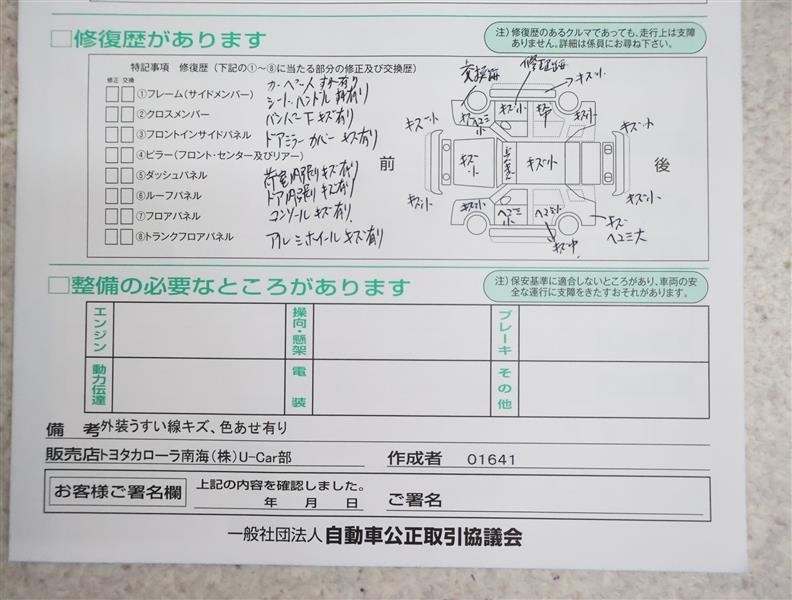 □修復歴があります
注）修復歴のあるクルマであっても、走行上は支障
ありません。詳細は係員にお尋ね下さい。
特記事項 修復歴（下記の①〜⑧に当たる部分の修正及び交換歴）
修正 交換
①フレーム（サイドメンバー）
②クロスメンバー
③フロントインサイドパネル
④ピラー（フロント・センター及びリアー）
⑤ダッシュパネル
⑥ルーフパネル
⑦フロアパネル
⑧トランクフロアパネル
シート、ハンドル
バンパー下 キズ有り
ドアミラー カバー キズ有り
荷室内張り キズ有り
ドア内張り キズ有り
コンソール キズ有り
アルミホイール キズ有り
前
後
交換済
修理済
キズ小
キズ小
キズ小
キズ小
キズ小
キズ小
キズ小
キズ小
キズ小
ヘコミ小
ヘコミ小
キズ中
キズ
ヘコミ大
□整備の必要なところがあります
注）保安基準に適合しないところがあり、車両の安
全な運行に支障をきたすおそれがあります。
エンジン
操向・懸架
ブレーキ
動力伝達
電装
その他
備 考 外装うすい線キズ、色あせ有り
販売店 トヨタカローラ南海（株）U-Car部 作成者 01641
お客様ご署名欄 上記の内容を確認しました。
年 月 日 ご署名
一般社団法人 自動車公正取引協議会